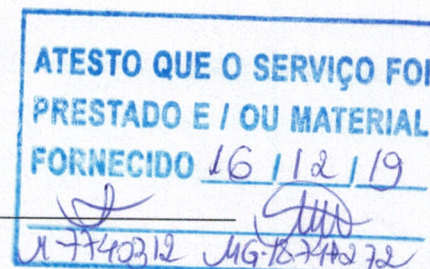 ATESTO QUE O SERVIÇO FOI
PRESTADO E / OU MATERIAL
FORNECIDO 16 / 12 / 19
M-7740312 MG-18.744272